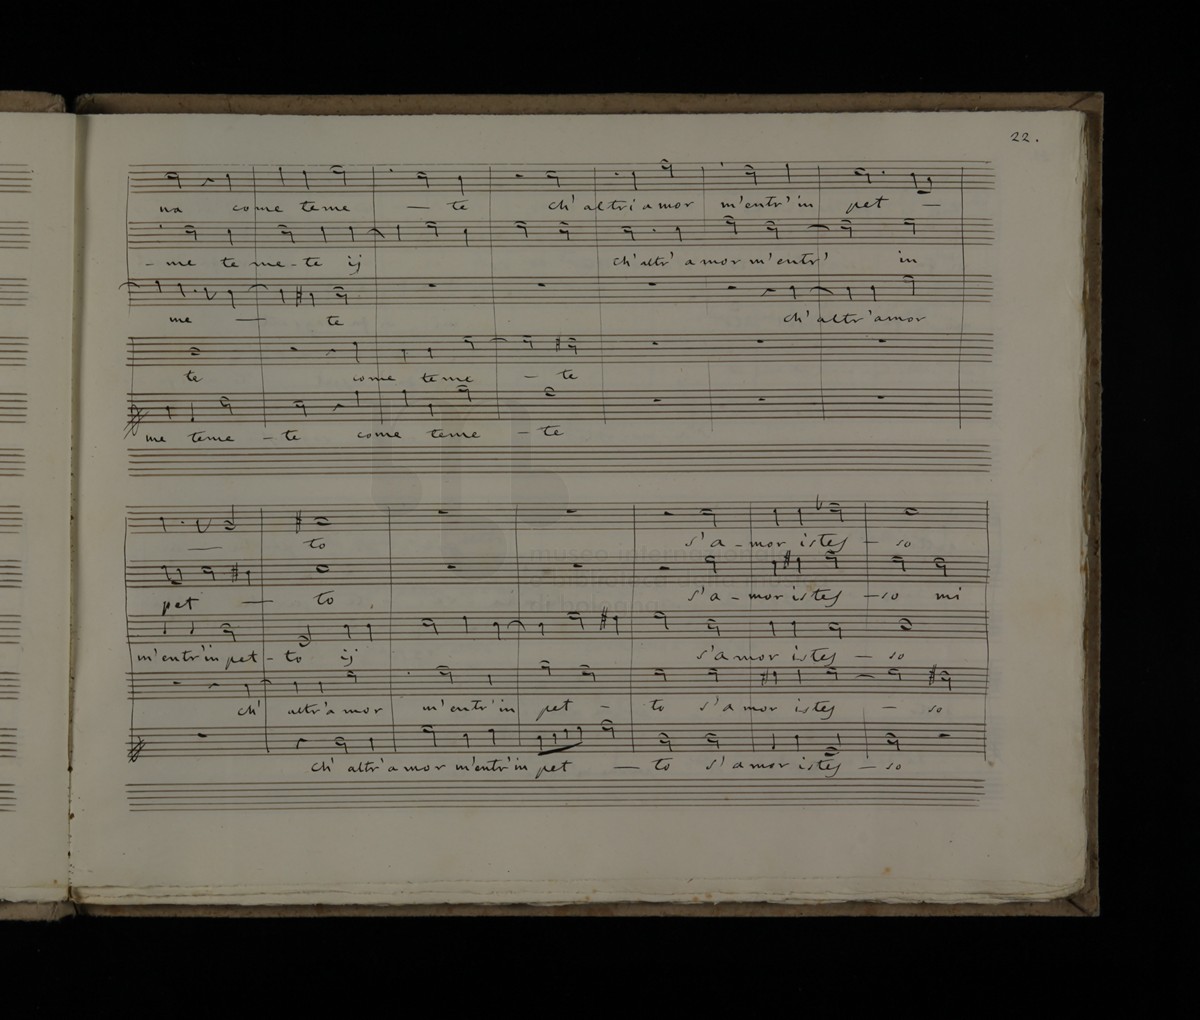 22.
na come teme — te ch' altri amor m'entr' in pet —
- me te me - te ij ch' altr' amor m'entr' in
me — te ch' altr' amor
te come teme — te
me teme - te come teme - te
— to s'a - mor istess — so
pet — to s'a - mor istess — so mi
m'entr' in pet - to ij s'amor istess — so
ch' altr'amor m'entr' in pet — to s'amor istess — so
ch' altr' amor m'entr' in pet — to s'amor istess — so